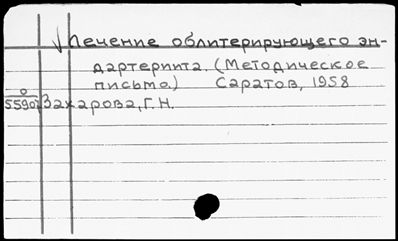 √ Лечение облитерирующего эн-
дартериита. (Методическое
письмо) Саратов, 1958
0
55907 Захарова, Г.Н.